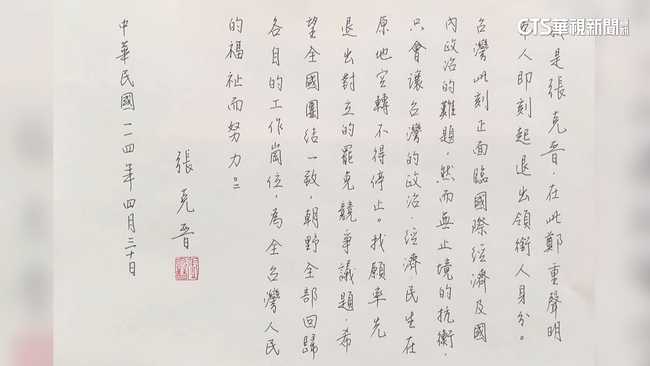 CTS華視新聞
是張克晉，在此鄭重聲明
本人即刻起退出領銜人身分。
台灣此刻正面臨國際經濟及國
內政治的難題，然而無止境的抗衡，
只會讓台灣的政治、經濟、民生在
原地空轉不得停止。我願率先
退出對立的罷免競爭議題，希
望全國團結一致，朝野全部回歸
各自的工作崗位，為全台灣人民
的福祉而努力。
張克晉
中華民國一一四年四月三十日